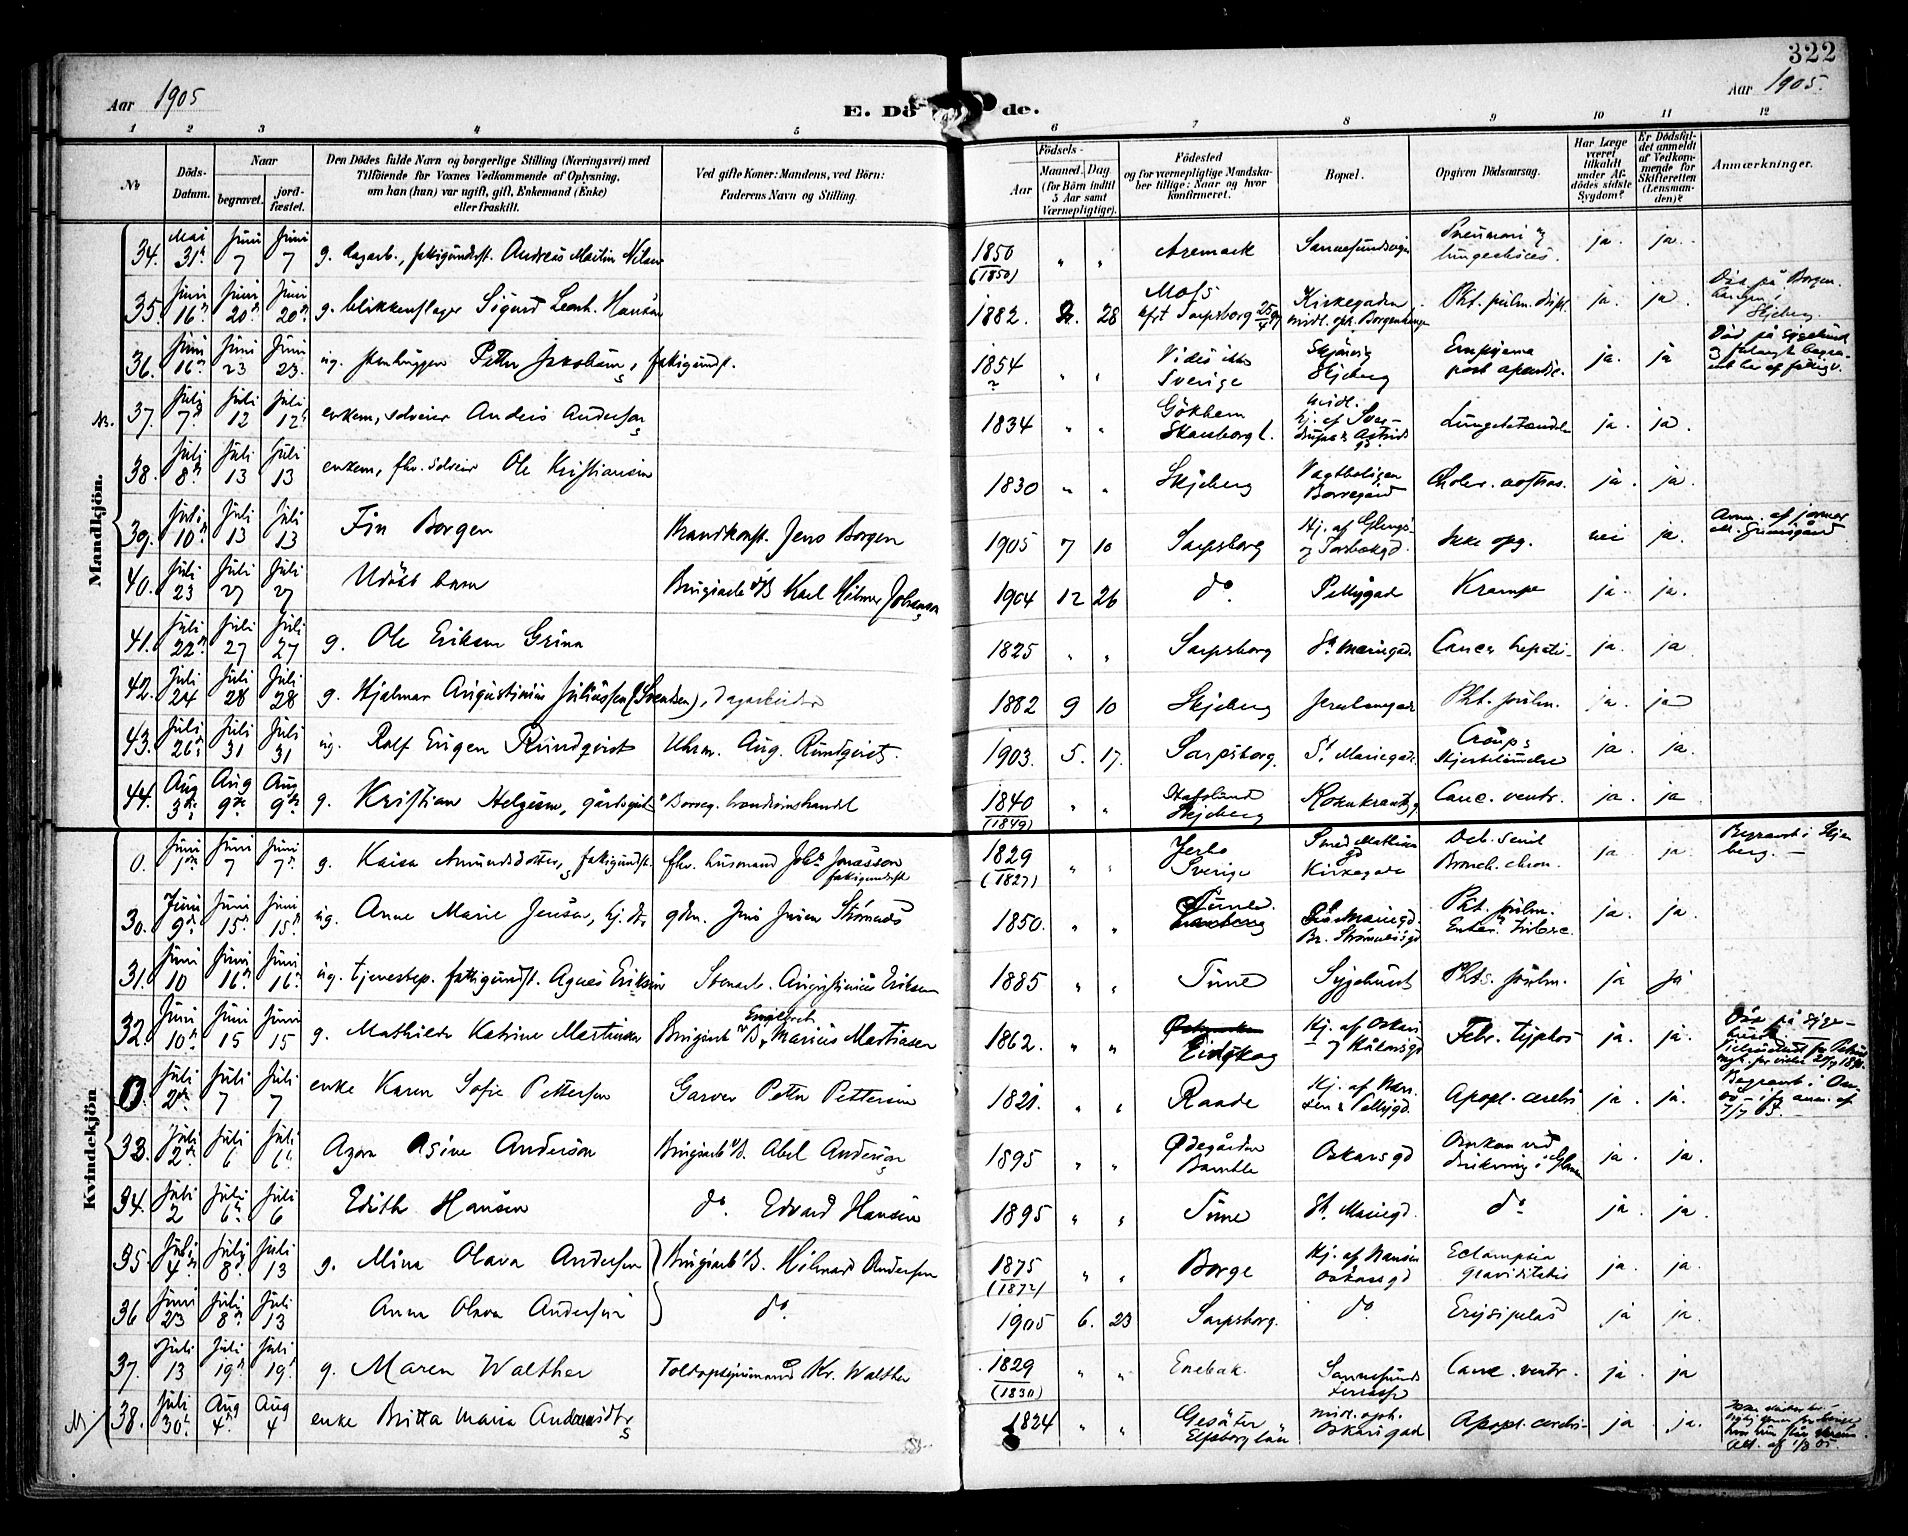 322
Aar 1905
Aar 1905.
E. Dö de.
1 2 3 4 5 6 7 8 9 10 11 12
No
Döds-Datum.
Naar
begravet.
jord-fæstet.
Den Dödes fulde Navn og borgerlige Stilling (Næringsvei) med
Tilföiende for Voxnes Vedkommende af Oplysning,
om han (hun) var ugift, gift, Enkemand (Enke)
eller fraskilt.
Ved gifte Koner: Mandens, ved Börn:
Faderens Navn og Stilling.
Födsels-
Aar
Maaned. Dag
(for Börn indtil
5 Aar samt
Værnepligtige).
Födested
og for værnepligtige Mandska-
ber tillige: Naar og hvor
konfirmeret.
Bopæl.
Opgiven Dödsaarsag.
Har Læge
været
tilkaldt
under Af-
dödes sidste
Sygdom?
Er Dödsfal-
det anmeldt
af Vedkom-
mende for
Skifteretten
(Lensman-
den)?
Anmærkninger.
Mandkjön.
34. Mai 31 Juni 7 Juni 7 g. dagarb., fattigunderst. Andreas Martin Nilsen 1850 (1850) " " Aremark Sannesundsvejen Pneumoni og ja. ja.
35. Juni 16 Juni 20 Juni 20 g. blikkenslager Sigurd Leonh. Hansen 1882. 2. 28 Moss kfrt Sarpsborg Kirkegaden midl. oph. Borgenhaugen Pht. pulm. dupl. ja. ja. Död på Borgenhaugen, Skjeberg.
36. Juni 16 Juni 23 Juni 23. ug. stenhugger Petter Jakobsen, fattigunderst. 1854 " " Vides ikke Sverige Skjeberg Empyema post apendic. ja. ja
37. Juli 7 Juli 12 Juli 12 enkem, Anders Anderson 1834 " " Gökhem Skarsborg l. Lungebetændelse ja. ja.
38. Juli 8 Juli 13 Juli 13 enkem, fhv. Ole Kristiansen 1830 " " Skjeberg Vagtboligen Borregård Choler. nostras. ja. ja.
39. Juli 10 Juli 13 Juli 13 Fin Borgen Brandkonst. Jens Borgen 1905 7 10 Sarpsborg Hj. af Glengs- og Torsbekgd. Ikke opg. nei ja. Anm. af jormor
40. Juli 23 Juli 27 Juli 27 Udöbt barn Brugsarb. Karl Hilmer Johansen 1904 12 26 do. Pellygade Krampe ja. ja.
41. Juli 22 Juli 27 Juli 27 g. Ole Eriksen Grina 1825 " " Sarpsborg St. Mariegad. Cancer hepatis ja. ja
42. Juli 24 Juli 28 Juli 28 g. Hjalmar Augustinius Juliussen (Svendsen), dagarbeider 1882 9 10 Skjeberg Pht. pulm. ja. ja
43. Juli 26 Juli 31 Juli 31 ug. Ralf Eugen Rundqvist Uhrm. Aug. Rundqvist. 1903. 5. 17. Sarpsborg. St Mariegad. Croup; Hjertelamelse ja. ja.
44. Aug 3 Aug 9 Aug 9 g. Kristian Helgesen, Borreg. 1840 (1849) " " Hafslund Skjeberg Rosenkrantzg Canc. ventr. ja. ja.
Kvindekjön
0. Juni 1 Juni 7 Juni 7 g. Kaisa Amundsdotter, fattigunderst. fhv. husmand Johs Jonasson fattigunderst 1829 (1827) " " Jerbo Sverige Kirkegade Deb. senil Bronch. chron. ja ja. Begravet i Skjeberg.
30. Juni 9 Juni 15 Juni 15 ug. Anne Marie Jensen, hj. dr. gdm. Jens Jensen Strömnes 1850. " " Tune. St. Mariegd. Br. Strömnesgd Pht. pulm. Enter. tuberc. ja. ja.
31. Juni 10 Juni 16 Juni 16 ug. tjenestep. fattigunderst. Agnes Eriksen Stenarb. Augustinius Eriksen 1885 " " Tune Sygehuset Phts. pulm. ja ja
32. Juni 10 Juni 15 Juni 15 g. Mathilde Katrine Martinsen Brugsarb. v B. Engebret Marius Martiasen 1862. " " Eidskog Hj. af Oskars og Håkonsgd Febr. typhos ja. ja. Död på syge-
0. Juli 2 Juli 7 Juli 7 enke Karen Sofie Pettersen Garver Petter Pettersen 1821. " " Raade Pellygd. Apopl. cerebri ja. ja.
33. Juli 2 Juli 6 Juli 6 Agna Asine Anderson Brugsarb v/B. Abel Anderson 1895 " " Ødegården Bamble Oskarsgd Omkom ved drukning i Glommen ja. ja.
34. Juli 2 Juli 6 Juli 6 Edith Hansen do. Edvard Hansen 1895 " " Tune St. Mariegd. do ja. ja.
35. Juli 4 Juli 8 Juli 13 g. Mina Olava Andersen Brugsarb v/B. Hilmar Andersen 1875 (1872) " " Borge Oskarsgd Eclampsia graviditatis ja. ja.
36 Juni 23 Juli 8 Juli 13 Anna Olava Andersen do. 1905 6. 23 Sarpsborg. do. Erysipelas ja ja.
37. Juli 13 Juli 19 Juli 19 g. Maren Walther Toldopsynsmand Kr. Walther 1829 (1830) " " Enebak. Canc. ventr. ja. ja
38. Juli 30 Aug 4 Aug 4 enke Britta Maria Andersdtr 1824 " " Gesäter Elfsborg län midl. oph. Oskarsgad Apopl. cerebri ja. ja.